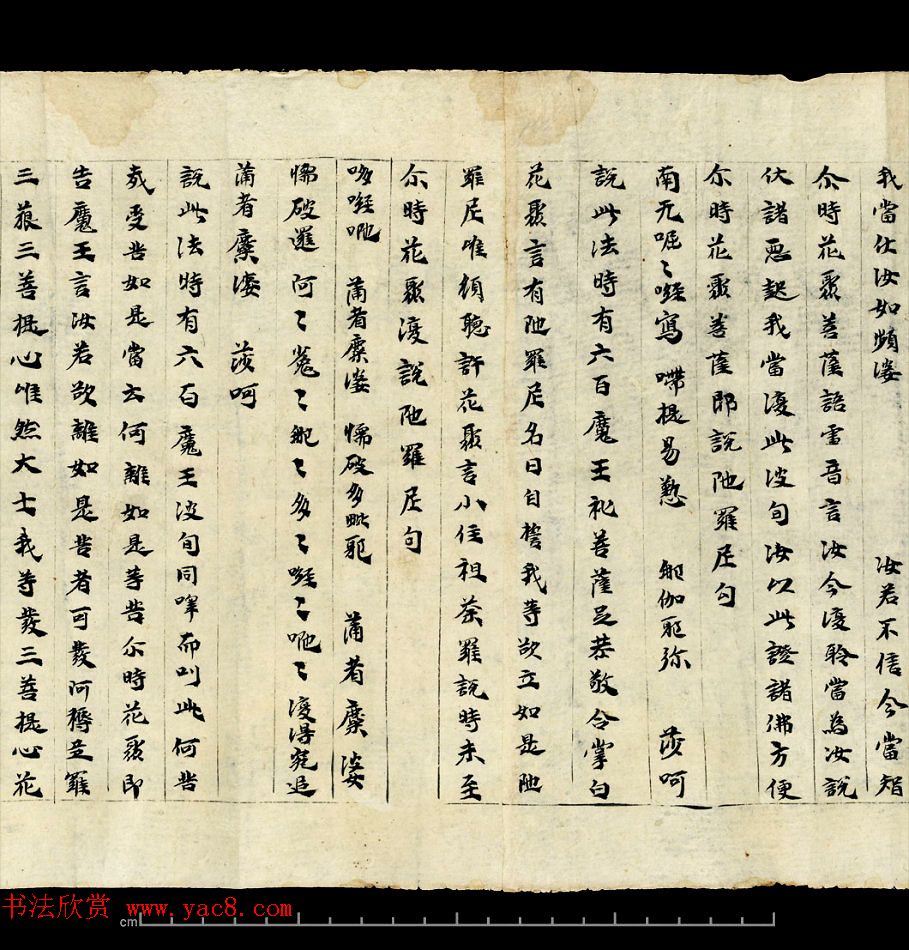 我當仕汝如頻婆 汝若不信今當智
尒時花聚菩薩語雷音言汝今復聆當為汝說
伏諸惡趣我當復此波旬汝以此證諸佛方便
尒時花聚善薩即說陁羅尼句
南无呧〻𭌺寫 㗣提易懃 𨈭伽耶弥 莎呵
說此法時有六百魔王礼菩薩足恭敬合掌白
花聚言有陁羅尼名曰自誓我等欲立如是陁
羅尼唯願聽許花聚言小住祖荼羅說時未至
尒時花聚復說陁羅尼句
哆𭌺咃 蒲者糜婆 懦破多毗耶 蒲者糜婆
懦破暹 阿〻𮎰〻 〻多〻𭌺〻咃〻復得究追
蒲者糜婆 莎呵
說此法時有六百魔王波旬同嘷而叫此何苦
哉受苦如是當云何離如是等苦尒時花聚即
告魔王言汝若欲離如是苦者可發阿耨三羅
三狼三善提心唯然大士我等發三善提心花
cm
书法欣赏 www.yac8.com